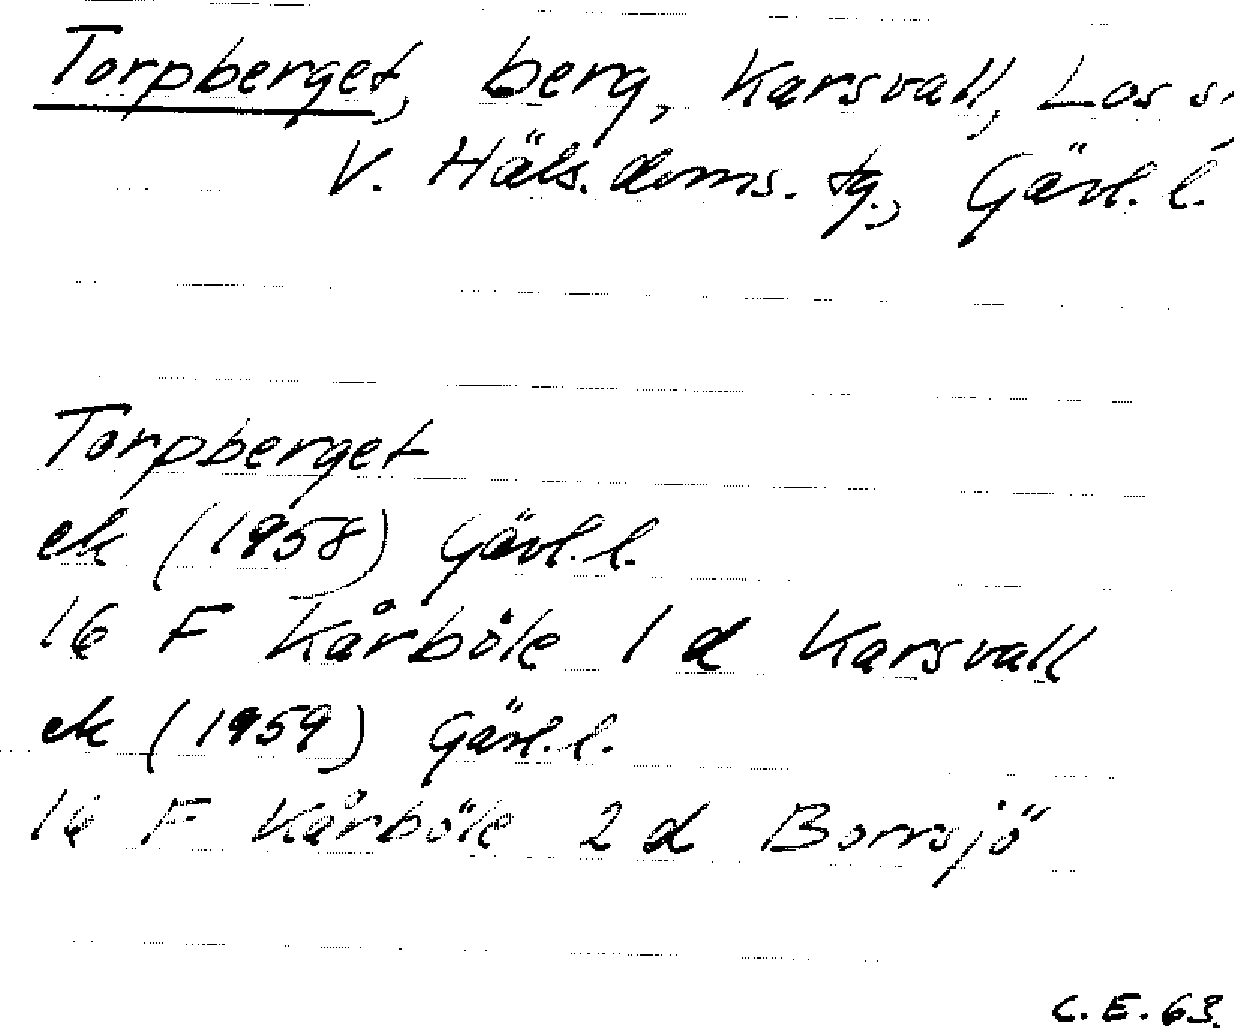 Torpberget, berg, Karsvall, Los sn,
V. Häls. doms. tg., Gävl. l.
Torpberget
ek (1958) Gävl. l.
16 F Kårböle 1 d Karsvall
ek (1959) Gävl. l.
16 F Kårböle 2 d Borrsjö
C. E. 63